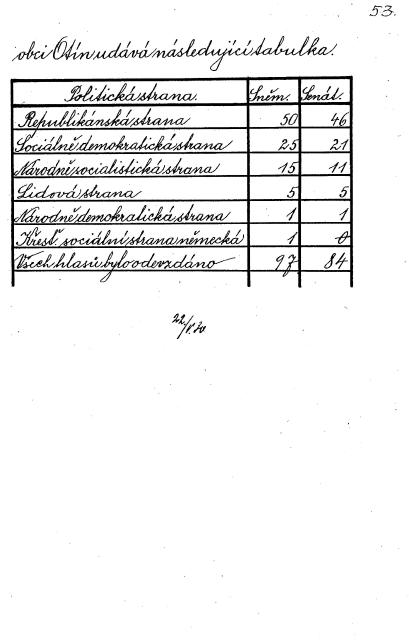 53.
obci Otín udává následující tabulka.
Politická strana. Sněm. Senát.
Republikánská strana 50 46
Sociálně demokratická strana 25 21
Národně socialistická strana 15 11
Lidová strana 5 5
Národně demokratická strana 1 1
Křesť. sociální strana německá 1 0
Všech hlasů bylo odevzdáno 97 84